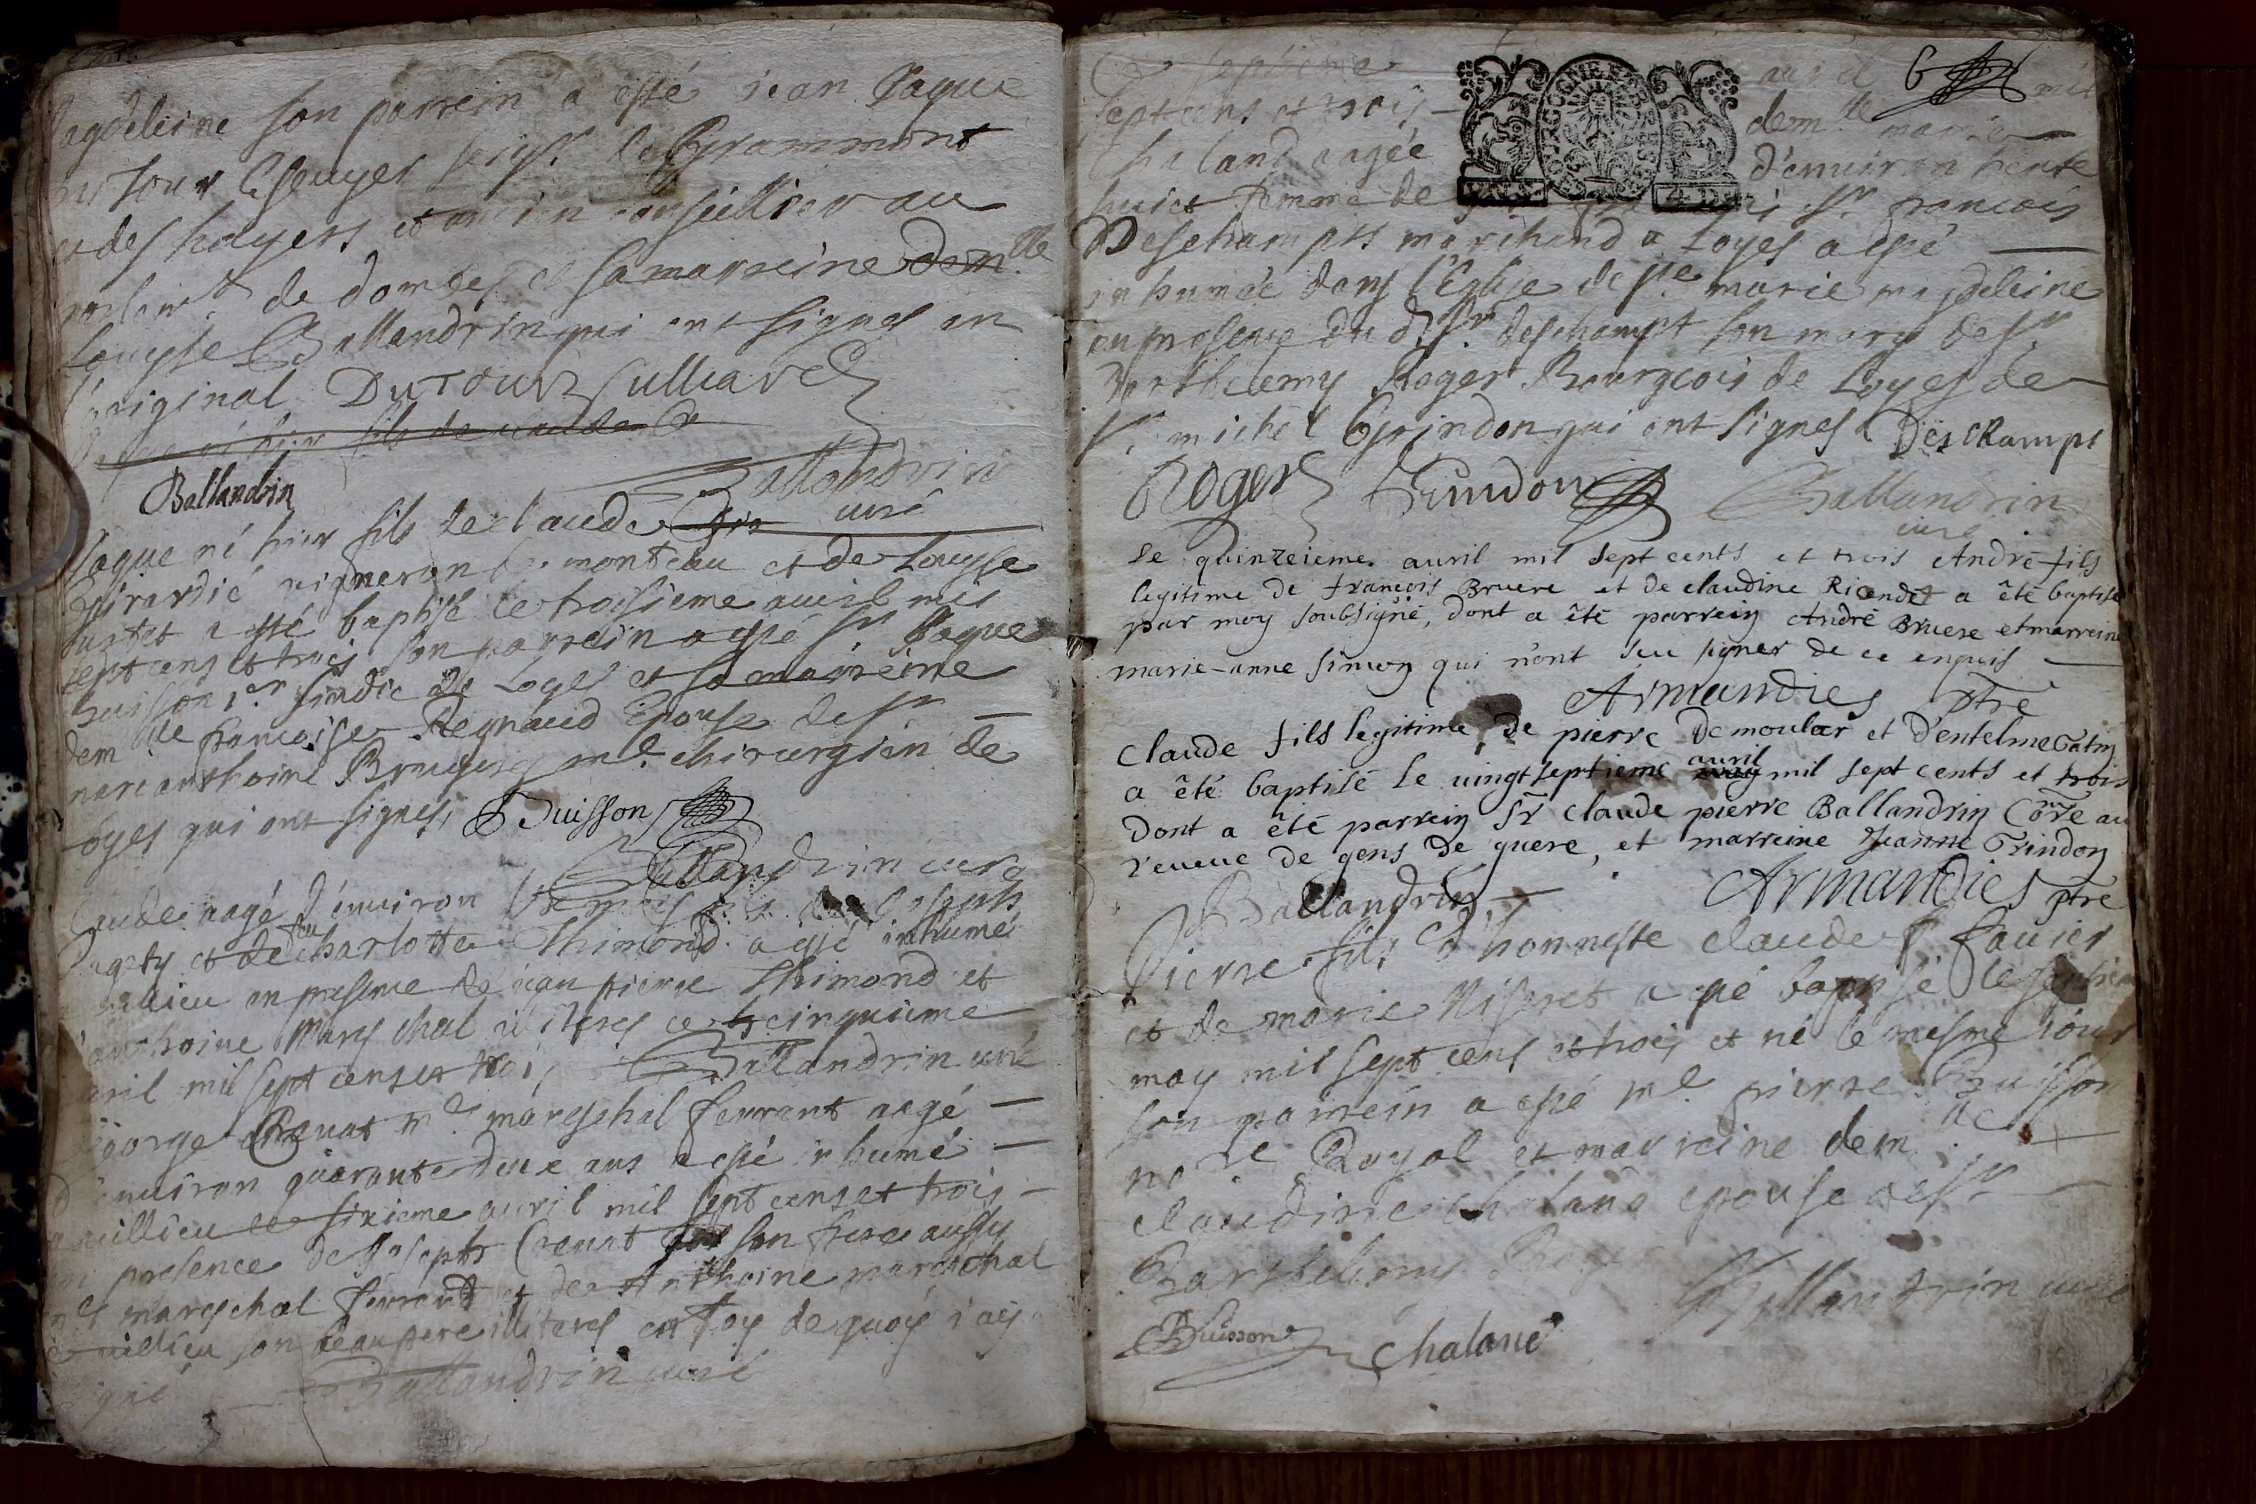 son parrein a esté jean Jaque
Escuyer seigr. de Grammont
et des hayers et ancien conseillier au
de dombes et sa marreine demlle
Louyse Ballandrin qui ont signes en
l'original DuTOUR Julliard
Ballandrin
Ballandrin
curé
Jaque né hier fils de claude
Girardié vigneron monteau et de Louyse
a esté baptisé ce troisieme auril mil
sept cens et trois son parrein a esté sr Jaque
Buisson 1er sindic de Loyes et sa marreine
demlle francoise Regnaud Epouse de sr
marc anthoine Bruyere me. chirurgien de
Loyes qui ont signes, Buisson
Ballandrin curé
Claude aagé d'enuiron mois fils de Joseph
et de feu charlotte Thimond a esté inhumé
en presence de jean pierre Thimond et
anthoine Mareschal illiteres ce cinquieme
auril mil sept cens et trois Ballandrin curé
George Creuat me mareschal ferrant aagé
d'enuiron quarante deux ans a esté inhumé
a uillieu ce sixieme auril mil sept cens et trois
en presence de Joseph Creuat son frere aussy
me mareschal ferrand et de Anthoine mareschal
de uillieu son beaupere illiteres en foy de quoy j'ay
signé Ballandrin curé
6
Ce septieme auril mil
sept cens et trois demlle marie
Chaland aagée d'enuiron trente
huict femme de sr francois
Deschamps marchand a Loyes a esté
inhumée dans l'Eglise de ste marie magdeleine
en presence du d. sr. deschamps son mary de sr.
Barthelemy Roger Bourgeois de Loyes de
sr. michel Grindon qui ont signes Deschamps
Roger Grindon Ballandrin
curé
le quinzeieme auril mil sept cents et trois André fils
legitime de francois Bruere et de claudine Ricandet a êté baptisé
par moy soubsigné, dont a êté parrein André Bruere et marreine
marie-anne simon qui n'ont sceu signer de ce enquis
Armandies ptre
claude fils legitime de pierre Demoular et D'entelme Tatin
a êté baptisé le uingtseptieme auril mil sept cents et trois
Dont a êté parrein sr claude pierre Ballandrin Core au
reueue de gens de guere, et marreine Jeanne Trindon
Ballandrin Armandies ptre
Pierre fils d'honneste claude fauier
et de marie Miseret a esté baptisé le septieme
may mil sept cens et trois et né le mesme jour
son parrein a esté me. pierre Buisson
nore Royal et marreine demlle
claudine chaland epouse de sr
Barthelemy Roger
Ballandrin curé
Buisson chaland